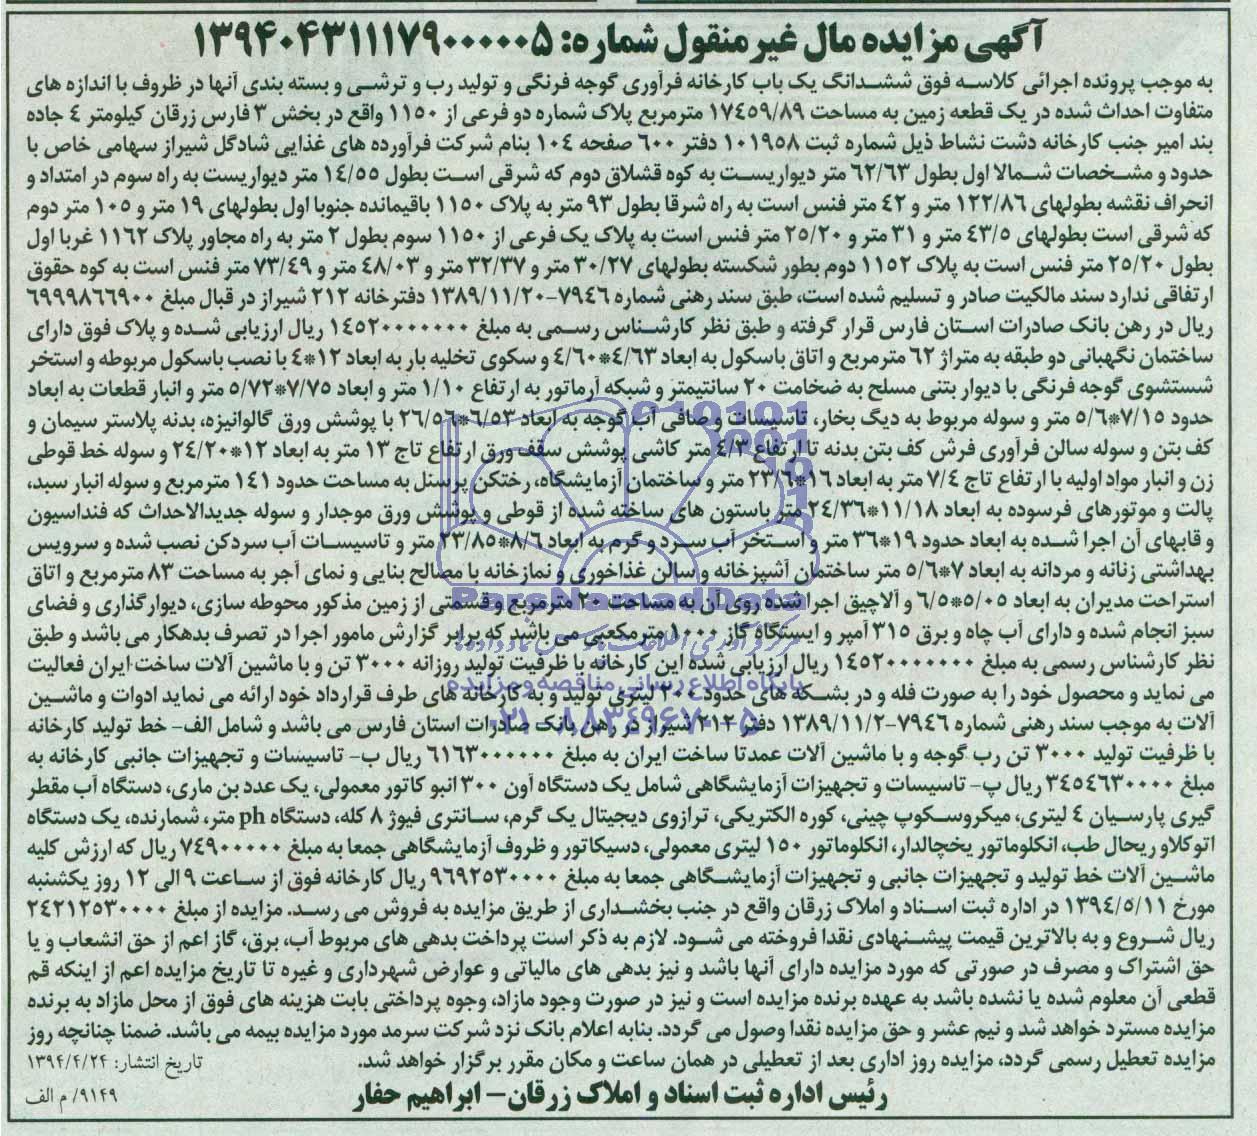 آگهی مزایده مال غیر منقول شماره: ۱۳۹۴۰۴۳۱۱۱۷۹۰۰۰۰۰۵
به موجب پرونده اجرائی کلاسه فوق ششدانگ یک باب کارخانه فرآوری گوجه فرنگی و تولید رب و ترشی و بسته بندی آنها در ظروف با اندازه های
متفاوت احداث شده در یک قطعه زمین به مساحت ۱۷۴۵۹/۸۹ مترمربع پلاک شماره دو فرعی از ۱۱۵۰ واقع در بخش ۳ فارس زرقان کیلومتر ۴ جاده
بند امیر جنب کارخانه دشت نشاط ذیل شماره ثبت ۱۰۱۹۵۸ دفتر ۶۰۰ صفحه ۱۰۴ بنام شرکت فرآورده های غذایی شادگل شیراز سهامی خاص با
حدود و مشخصات شمالا اول بطول ۶۲/۶۳ متر دیواریست به کوه قشلاق دوم که شرقی است بطول ۱۴/۵۵ متر دیواریست به راه سوم در امتداد و
انحراف نقشه بطولهای ۱۲۲/۸۶ متر و ۴۲ متر فنس است به راه شرقا بطول ۹۳ متر به پلاک ۱۱۵۰ باقیمانده جنوبا اول بطولهای ۱۹ متر و ۱۰۵ متر دوم
که شرقی است بطولهای ۴۳/۵ متر و ۳۱ متر و ۲۵/۲۰ متر فنس است به پلاک یک فرعی از ۱۱۵۰ سوم بطول ۲ متر به راه مجاور پلاک ۱۱۶۲ غربا اول
بطول ۲۵/۲۰ متر فنس است به پلاک ۱۱۵۲ دوم بطور شکسته بطولهای ۳۰/۲۷ متر و ۳۲/۳۷ متر و ۴۸/۰۳ متر و ۷۳/۴۹ متر فنس است به کوه حقوق
ارتفاقی ندارد سند مالکیت صادر و تسلیم شده است، طبق سند رهنی شماره ۷۹۴۶-۱۳۸۹/۱۱/۲۰ دفترخانه ۲۱۲ شیراز در قبال مبلغ ۶۹۹۹۸۶۶۹۰۰
ریال در رهن بانک صادرات استان فارس قرار گرفته و طبق نظر کارشناس رسمی به مبلغ ۱۴۵۲۰۰۰۰۰۰۰ ریال ارزیابی شده و پلاک فوق دارای
ساختمان نگهبانی دو طبقه به متراژ ۶۲ مترمربع و اتاق باسکول به ابعاد ۴/۶۳*۴/۶۰ و سکوی تخلیه بار به ابعاد ۱۲*۴ با نصب باسکول مربوطه و استخر
شستشوی گوجه فرنگی با دیوار بتنی مسلح به ضخامت ۲۰ سانتیمتر و شبکه آرماتور به ارتفاع ۱/۱۰ متر و ابعاد ۷/۷۵*۵/۷۲ متر و انبار قطعات به ابعاد
حدود ۷/۱۵*۵/۶ متر و سوله مربوط به دیگ بخار، تاسیسات و صافی آب گوجه به ابعاد ۶/۵۳*۲۶/۵۶ با پوشش ورق گالوانیزه، بدنه پلاستر سیمان و
کف بتن و سوله سالن فرآوری فرش کف بتن بدنه تا ارتفاع ۴/۳ متر کاشی پوشش سقف ورق ارتفاع تاج ۱۳ متر به ابعاد ۱۲*۲۴/۲۰ و سوله خط قوطی
زن و انبار مواد اولیه با ارتفاع تاج ۷/۴ متر به ابعاد ۱۶*۲۳/۶ متر و ساختمان آزمایشگاه، رختکن پرسنل به مساحت حدود ۱۴۱ مترمربع و سوله انبار سبد،
پالت و موتورهای فرسوده به ابعاد ۱۱/۱۸*۲۴/۳۶ متر باستون های ساخته شده از قوطی و پوشش ورق موجدار و سوله جدیدالاحداث که فنداسیون
و قابهای آن اجرا شده به ابعاد حدود ۱۹*۳۶ متر و استخر آب سرد و گرم به ابعاد ۸/۶*۲۳/۸۵ متر و تاسیسات آب سردکن نصب شده و سرویس
بهداشتی زنانه و مردانه به ابعاد ۷*۵/۶ متر ساختمان آشپزخانه و سالن غذاخوری و نمازخانه با مصالح بنایی و نمای آجر به مساحت ۸۳ مترمربع و اتاق
استراحت مدیران به ابعاد ۵/۰۵*۶/۵ و آلاچیق اجرا شده روی آن به مساحت ۲۰ مترمربع و قسمتی از زمین مذکور محوطه سازی، دیوارگذاری و فضای
سبز انجام شده و دارای آب چاه و برق ۳۱۵ آمپر و ایستگاه گاز ۱۰۰۰ مترمکعبی می باشد که برابر گزارش مامور اجرا در تصرف بدهکار می باشد و طبق
نظر کارشناس رسمی به مبلغ ۱۴۵۲۰۰۰۰۰۰۰ ریال ارزیابی شده این کارخانه با ظرفیت تولید روزانه ۳۰۰۰ تن و با ماشین آلات ساخت ایران فعالیت
می نماید و محصول خود را به صورت فله و در بشکه های حدود ۲۰۰ لیتری تولید و به کارخانه های طرف قرارداد خود ارائه می نماید ادوات و ماشین
آلات به موجب سند رهنی شماره ۷۹۴۶-۱۳۸۹/۱۱/۲ دفتر ۲۱۲ شیراز در رهن بانک صادرات استان فارس می باشد و شامل الف- خط تولید کارخانه
با ظرفیت تولید ۳۰۰۰ تن رب گوجه و با ماشین آلات عمدتا ساخت ایران به مبلغ ۶۱۶۳۰۰۰۰۰۰ ریال ب- تاسیسات و تجهیزات جانبی کارخانه به
مبلغ ۳۴۵۴۶۳۰۰۰۰ ریال پ- تاسیسات و تجهیزات آزمایشگاهی شامل یک دستگاه آون ۳۰۰ انبو کاتور معمولی، یک عدد بن ماری، دستگاه آب مقطر
گیری پارسیان ۴ لیتری، میکروسکوپ چینی، کوره الکتریکی، ترازوی دیجیتال یک گرم، سانتری فیوژ ۸ کله، دستگاه ph متر، شمارنده، یک دستگاه
اتوکلاو ریحال طب، انکلوماتور یخچالدار، انکلوماتور ۱۵۰ لیتری معمولی، دسیکاتور و ظروف آزمایشگاهی جمعا به مبلغ ۷۴۹۰۰۰۰۰ ریال که ارزش کلیه
ماشین آلات خط تولید و تجهیزات جانبی و تجهیزات آزمایشگاهی جمعا به مبلغ ۹۶۹۲۵۳۰۰۰۰ ریال کارخانه فوق از ساعت ۹ الی ۱۲ روز یکشنبه
مورخ ۱۳۹۴/۵/۱۱ در اداره ثبت اسناد و املاک زرقان واقع در جنب بخشداری از طریق مزایده به فروش می رسد. مزایده از مبلغ ۲۴۲۱۲۵۳۰۰۰۰
ریال شروع و به بالاترین قیمت پیشنهادی نقدا فروخته می شود. لازم به ذکر است پرداخت بدهی های مربوط آب، برق، گاز اعم از حق انشعاب و یا
حق اشتراک و مصرف در صورتی که مورد مزایده دارای آنها باشد و نیز بدهی های مالیاتی و عوارض شهرداری و غیره تا تاریخ مزایده اعم از اینکه قم
قطعی آن معلوم شده یا نشده باشد به عهده برنده مزایده است و نیز در صورت وجود مازاد، وجوه پرداختی بابت هزینه های فوق از محل مازاد به برنده
مزایده مسترد خواهد شد و نیم عشر و حق مزایده نقدا وصول می گردد. بنابه اعلام بانک نزد شرکت سرمد مورد مزایده بیمه می باشد. ضمنا چنانچه روز
مزایده تعطیل رسمی گردد، مزایده روز اداری بعد از تعطیلی در همان ساعت و مکان مقرر برگزار خواهد شد.
تاریخ انتشار: ۱۳۹۴/۴/۲۴
رئیس اداره ثبت اسناد و املاک زرقان- ابراهیم حفار
۹۱۴۹/ م الف
ParsNamadData
پایگاه اطلاع رسانی مناقصه و مزایده
۰۲۱-۸۸۳۴۹۶۷۰-۵